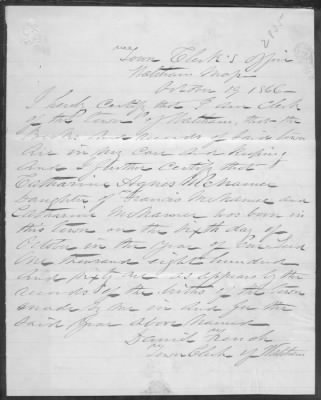 Town Clerk's Office
Waltham Mass
October 17 1866
I hereby certify that I am Clerk
of the town of Waltham, that the
Books and records of said town
are in my care and keeping
And I further certify that
Catharine Agnes McNamee
Daughter of Francis McNamee and
Catharine McNamee was born in
this town on the sixth day of
October in the year of our Lord
One thousand eight hundred
and sixty one as appears by the
records of the births of the town
made by me in and for the
said year above named
Daniel French
Town Clerk of Waltham